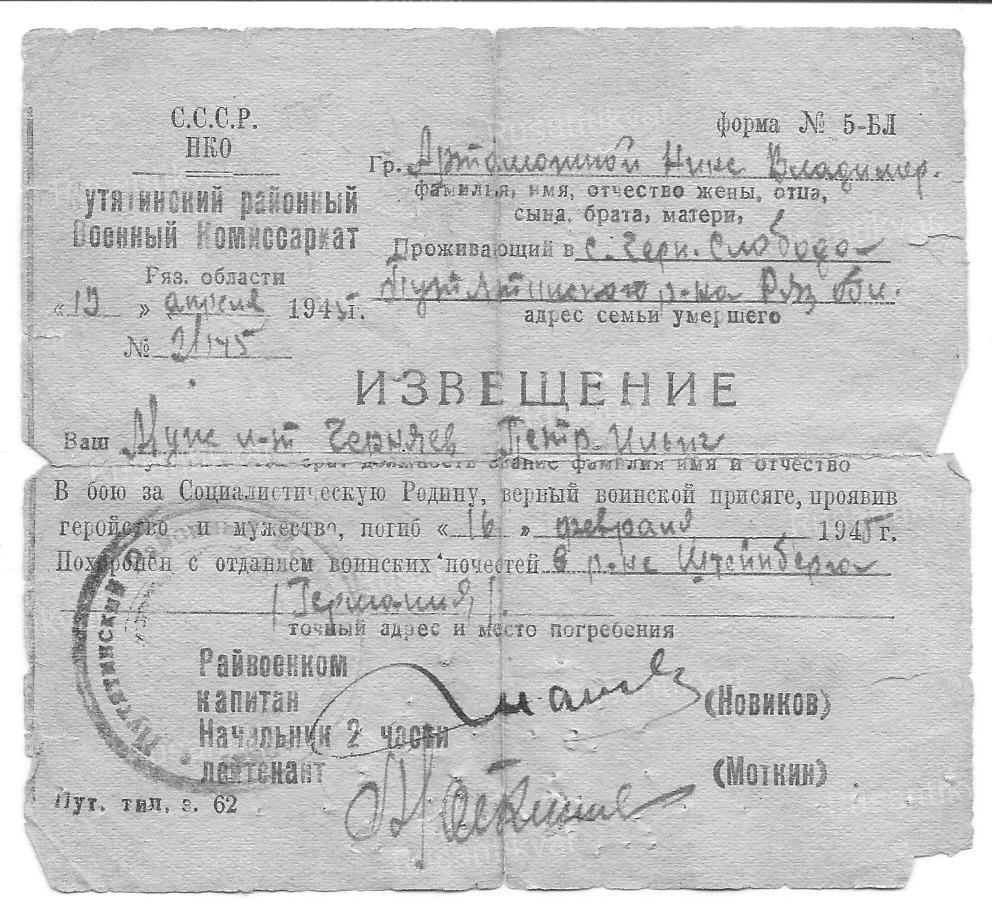 С.С.С.Р.
НКО
утятинский районный
Военный Комиссариат
Ряз. области
« » апреля 1945г.
№ 2/145
форма № 5-БЛ
Гр. Нине Владимир.
фамилья, имя, отчество жены, отца,
сына, брата, матери,
Проживающий в с. Черн. Слобода
Путятинского р-на Ряз обл.
адрес семьи умершего
ИЗВЕЩЕНИЕ
Ваш Муж л-т Черняев Петр Ильич
брат должность звание фамилия имя и отчество
В бою за Социалистическую Родину, верный воинской присяге, проявив
геройство и мужество, погиб «16» февраля 1945г.
Похоронен с отданием воинских почестей в р-не Штейнберга
(Германия).
точный адрес и место погребения
Райвоенком
капитан
(Новиков)
Начальник 2 части
лейтенант
(Моткин)
Пут. тип. з. 62
Путятинский